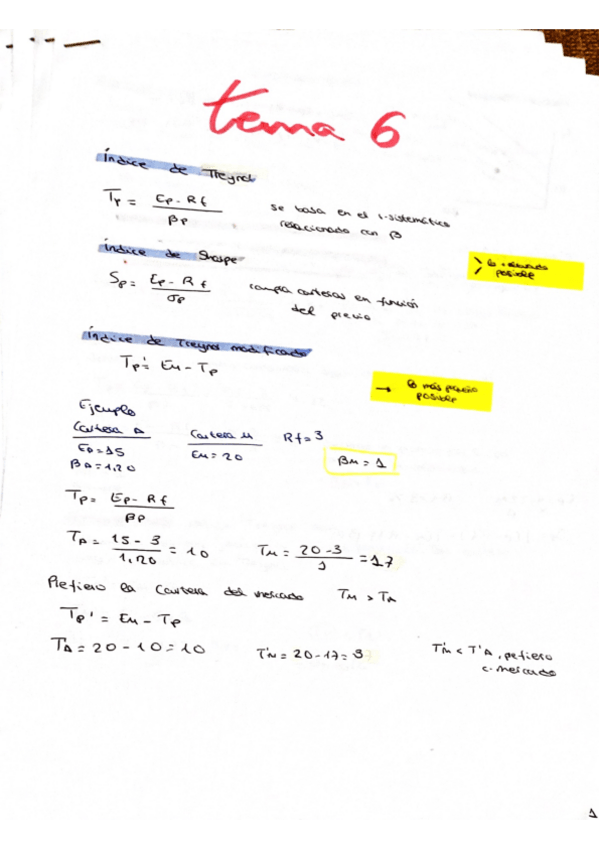 tema 6
Índice de Treynor
Tp = Ep - Rf / βp
se basa en el r-sistemático
relacionado con β
Índice de Sharpe
Sp = Ep - Rf / σp
compla carteras en función
del precio
lo + elevado
posible
Índice de Treynor modificado
Tp' = Em - Tp
→ lo más pequeño
posible
Ejemplo
Cartera A
Cartera M
Rf = 3
EA = 15
EM = 20
βM = 1
βA = 1,20
Tp = Ep - Rf / βp
TA = 15 - 3 / 1,20 = 10
TM = 20 - 3 / 1 = 17
Prefiero la Cartera del mercado TM > TA
Tp' = Em - Tp
TA = 20 - 10 = 10
T'M = 20 - 17 = 3
T'M < T'A, prefiero
c. mercado
1